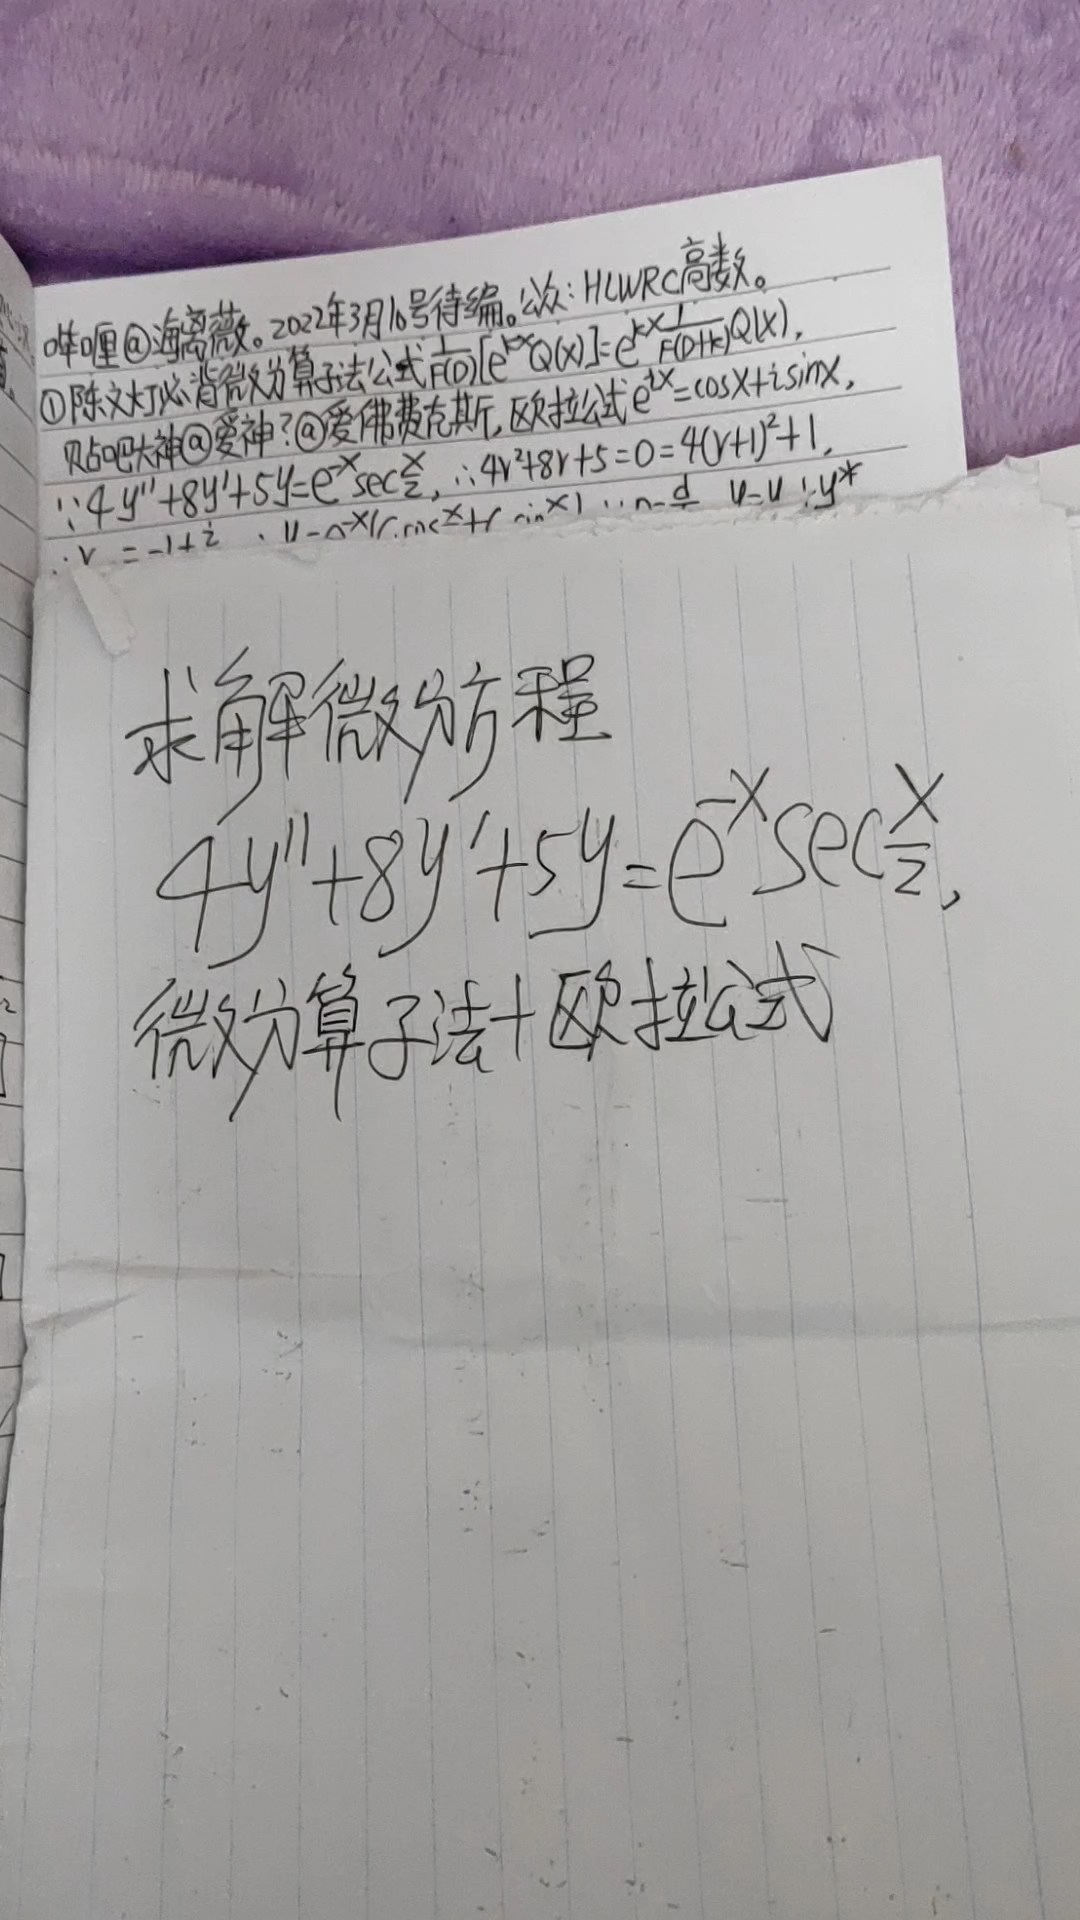 咩哩@海离薇。2022年3月16号待编。公众:HLWRC高数。
①陈文灯必背微分算子法公式1/F(D)[e^{kx}Q(x)]=e^{kx}1/F(D+k)Q(x),
贴吧大神@爱神?@爱佛费克斯,欧拉公式e^{ix}=cosx+isinx,
∵4y''+8y'+5y=e^{-x}sec x/2,∴4r²+8r+5=0=4(r+1)²+1,
求解微分方程
4y''+8y'+5y=e^{-x}sec x/2,
微分算子法+欧拉公式